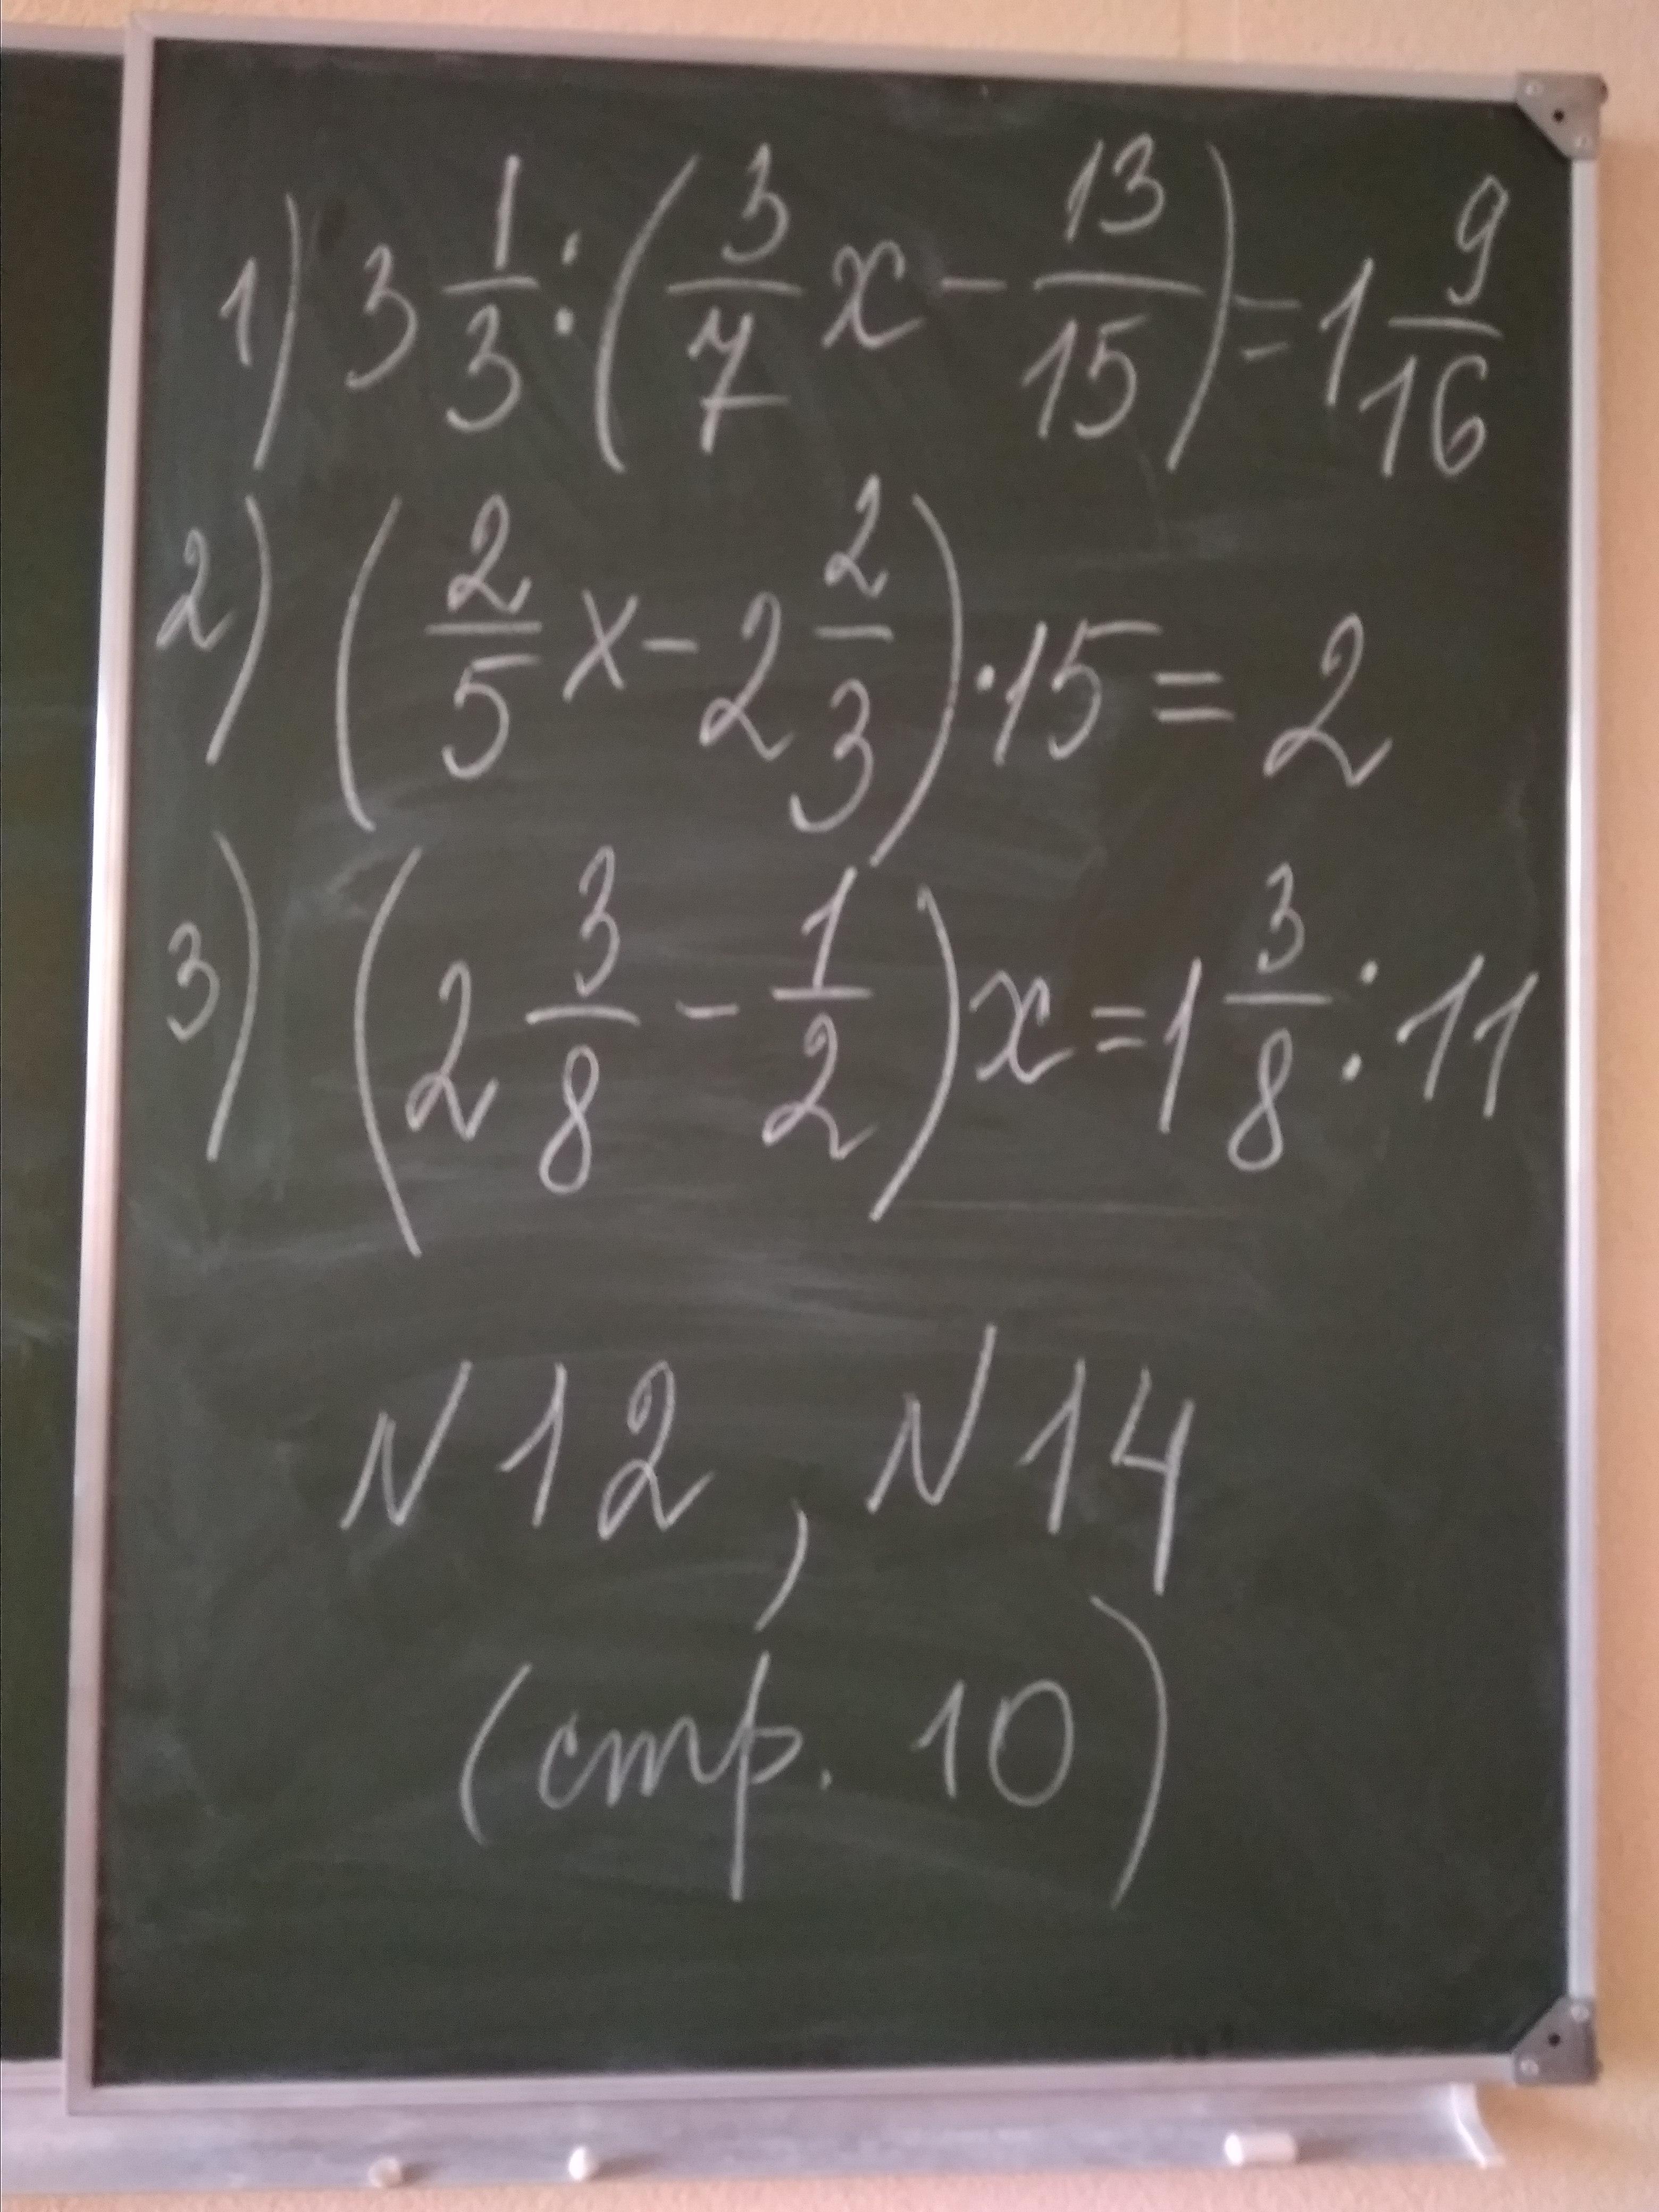 1) 3 1/3 : (3/7 x - 13/15) = 1 9/16
2) (2/5 x - 2 2/3) · 15 = 2
3) (2 3/8 - 1/2) x = 1 3/8 : 11
N 12, N 14
(стр. 10)